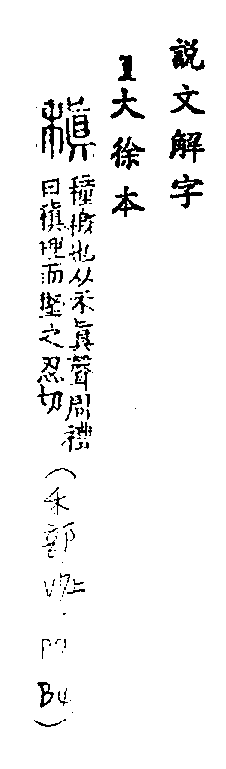 説文解字
1大徐本
稹
穜穊也从禾眞聲周禮
曰稹理而堅之忍切
(禾部 B4)